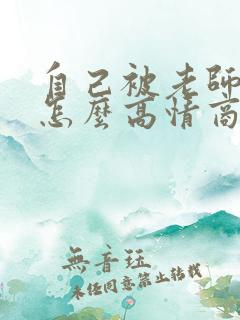 自己被老師
怎麼高情商
無音珏
未经同意禁止转载